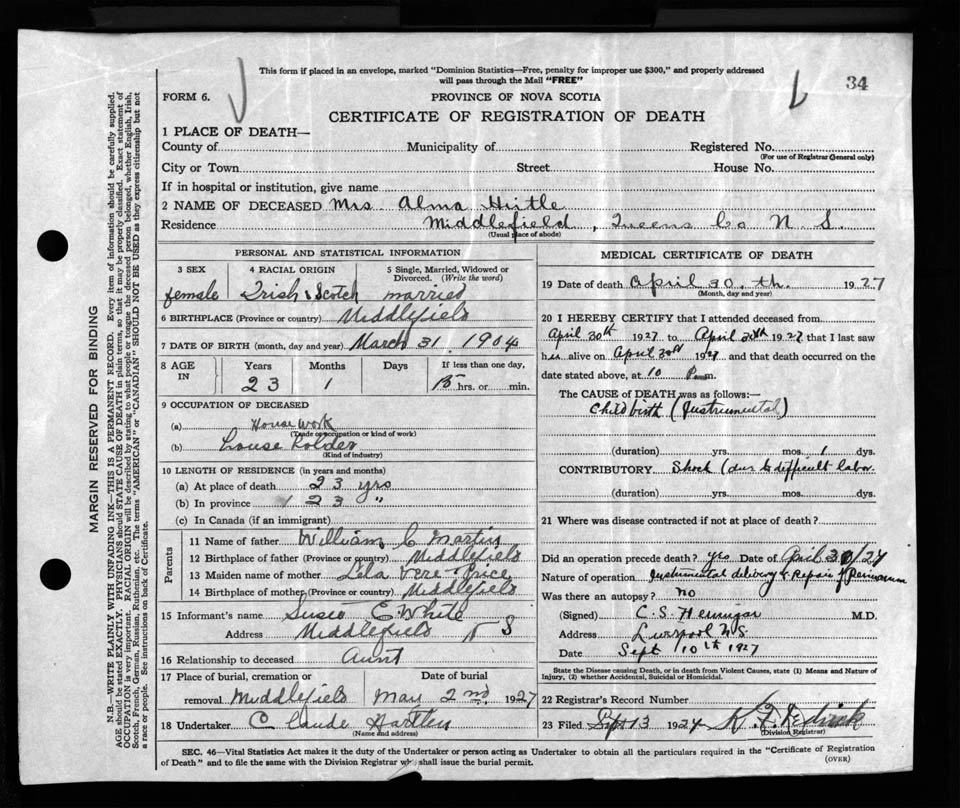 This form if placed in an envelope, marked "Dominion Statistics—Free, penalty for improper use $300," and properly addressed
will pass through the Mail "FREE"
34
FORM 6.
PROVINCE OF NOVA SCOTIA
CERTIFICATE OF REGISTRATION OF DEATH
1 PLACE OF DEATH—
County of Municipality of Registered No.
(For use of Registrar General only)
City or Town Street House No.
If in hospital or institution, give name
2 NAME OF DECEASED Mrs. Alma Hirtle
Residence Middlefield, Queens Co N. S.
(Usual place of abode)
PERSONAL AND STATISTICAL INFORMATION
3 SEX 4 RACIAL ORIGIN 5 Single, Married, Widowed or
Divorced. (Write the word)
female Irish & Scotch married
6 BIRTHPLACE (Province or country) Middlefield
7 DATE OF BIRTH (month, day and year) March 31, 1904
8 AGE IN Years Months Days If less than one day,
23 1 hrs. or min.
9 OCCUPATION OF DECEASED
(a) House work
(Trade or occupation or kind of work)
(b) House
(Kind of industry)
10 LENGTH OF RESIDENCE (in years and months)
(a) At place of death 23 yrs
(b) In province 23 "
(c) In Canada (if an immigrant)
Parents
11 Name of father William C Martin
12 Birthplace of father (Province or country) Middlefield
13 Maiden name of mother Lela Vere Price
14 Birthplace of mother (Province or country) Middlefield
15 Informant's name Susie E White
Address Middlefield N S
16 Relationship to deceased Aunt
17 Place of burial, cremation or Date of burial
removal Middlefield May 2nd. 1927
18 Undertaker Claude Hartlen
(Name and address)
MEDICAL CERTIFICATE OF DEATH
19 Date of death April 30. th. 1927
(Month, day and year)
20 I HEREBY CERTIFY that I attended deceased from
April 30th 1927 to April 30th 1927 that I last saw
her alive on April 30th 1927 and that death occurred on the
date stated above, at 10 P.m.
The CAUSE OF DEATH was as follows:—
Childbirth (Instrumental)
(duration) yrs. mos. 1 days.
CONTRIBUTORY Shock (due to difficult labor.
(duration) yrs. mos. dys.
21 Where was disease contracted if not at place of death?
Did an operation precede death? yes Date of April 30/27
Nature of operation Instrumental delivery & Repair of Perineum
Was there an autopsy? no
(Signed) C. S. Hennigar M.D.
Address Liverpool N.S.
Date Sept 10th 1927
State the Disease causing Death, or in death from Violent Causes, state (1) Means and Nature of
Injury, (2) whether Accidental, Suicidal or Homicidal.
22 Registrar's Record Number
23 Filed Sept 13 1927
(Division Registrar)
SEC. 46—Vital Statistics Act makes it the duty of the Undertaker or person acting as Undertaker to obtain all the particulars required in the "Certificate of Registration
of Death" and to file the same with the Division Registrar who shall issue the burial permit.
(OVER)
MARGIN RESERVED FOR BINDING
N.B.—WRITE PLAINLY WITH UNFADING INK—THIS IS A PERMANENT RECORD. Every item of information should be carefully supplied.
AGE should be stated EXACTLY. PHYSICIANS should STATE CAUSE OF DEATH in plain terms, so that it may be properly classified. Exact statement of
OCCUPATION is very important. RACIAL ORIGIN will be described by stating to what people or tongue the deceased person belonged, whether English, Irish,
Scotch, French, German, Russian, Ruthenian, etc. The terms "AMERICAN" or "CANADIAN" SHOULD NOT BE USED as they express citizenship but not
a race or people. See instructions on back of Certificate.